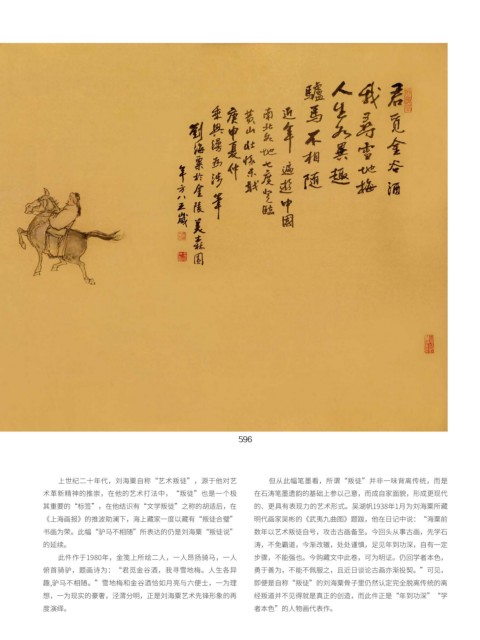 君覓金谷酒
我尋雪地梅
人生各異趣
驢馬不相隨
近年遍遊中國
南北各地七度登臨
黃山壯懷未戢
庚申夏仲
乘興漫為涉筆
劉海粟於金陵
年方八五歲
596
上世纪二十年代，刘海粟自称“艺术叛徒”，源于他对艺
术革新精神的推崇，在他的艺术打法中，“叛徒”也是一个极
其重要的“标签”。在他结识有“文学叛徒”之称的胡适后，在
《上海画报》的推波助澜下，海上藏家一度以藏有“叛徒合璧”
书画为荣。此幅“驴马不相随”所表达的仍是刘海粟“叛徒说”
的延续。
此件作于1980年，金笺上所绘二人，一人昂扬骑马，一人
俯首骑驴，题画诗为：“君觅金谷酒，我寻雪地梅。人生各异
趣,驴马不相随。”雪地梅和金谷酒恰如月亮与六便士，一为理
想，一为现实的豪奢，泾渭分明，正是刘海粟艺术先锋形象的再
度演绎。
但从此幅笔墨看，所谓“叛徒”并非一味背离传统，而是
在石涛笔墨遗韵的基础上参以己意，而成自家面貌，形成更现代
的、更具有表现力的艺术形式。吴湖帆1938年1月为刘海粟所藏
明代画家吴彬的《武夷九曲图》题跋，他在日记中说：“海粟前
数年以艺术叛徒自号，攻击古画备至。今回头从事古画，先学石
涛，不免霸道，今渐改辙，处处谨慎，足见年到功深，自有一定
步骤，不能强也。今购藏文中此卷，可为明证。仍回学者本色，
勇于善为，不能不佩服之，且近日谈论古画亦渐投契。”可见，
即便是自称“叛徒”的刘海粟骨子里仍然认定完全脱离传统的离
经叛道并不见得就是真正的创造，而此件正是“年到功深”“学
者本色”的人物画代表作。